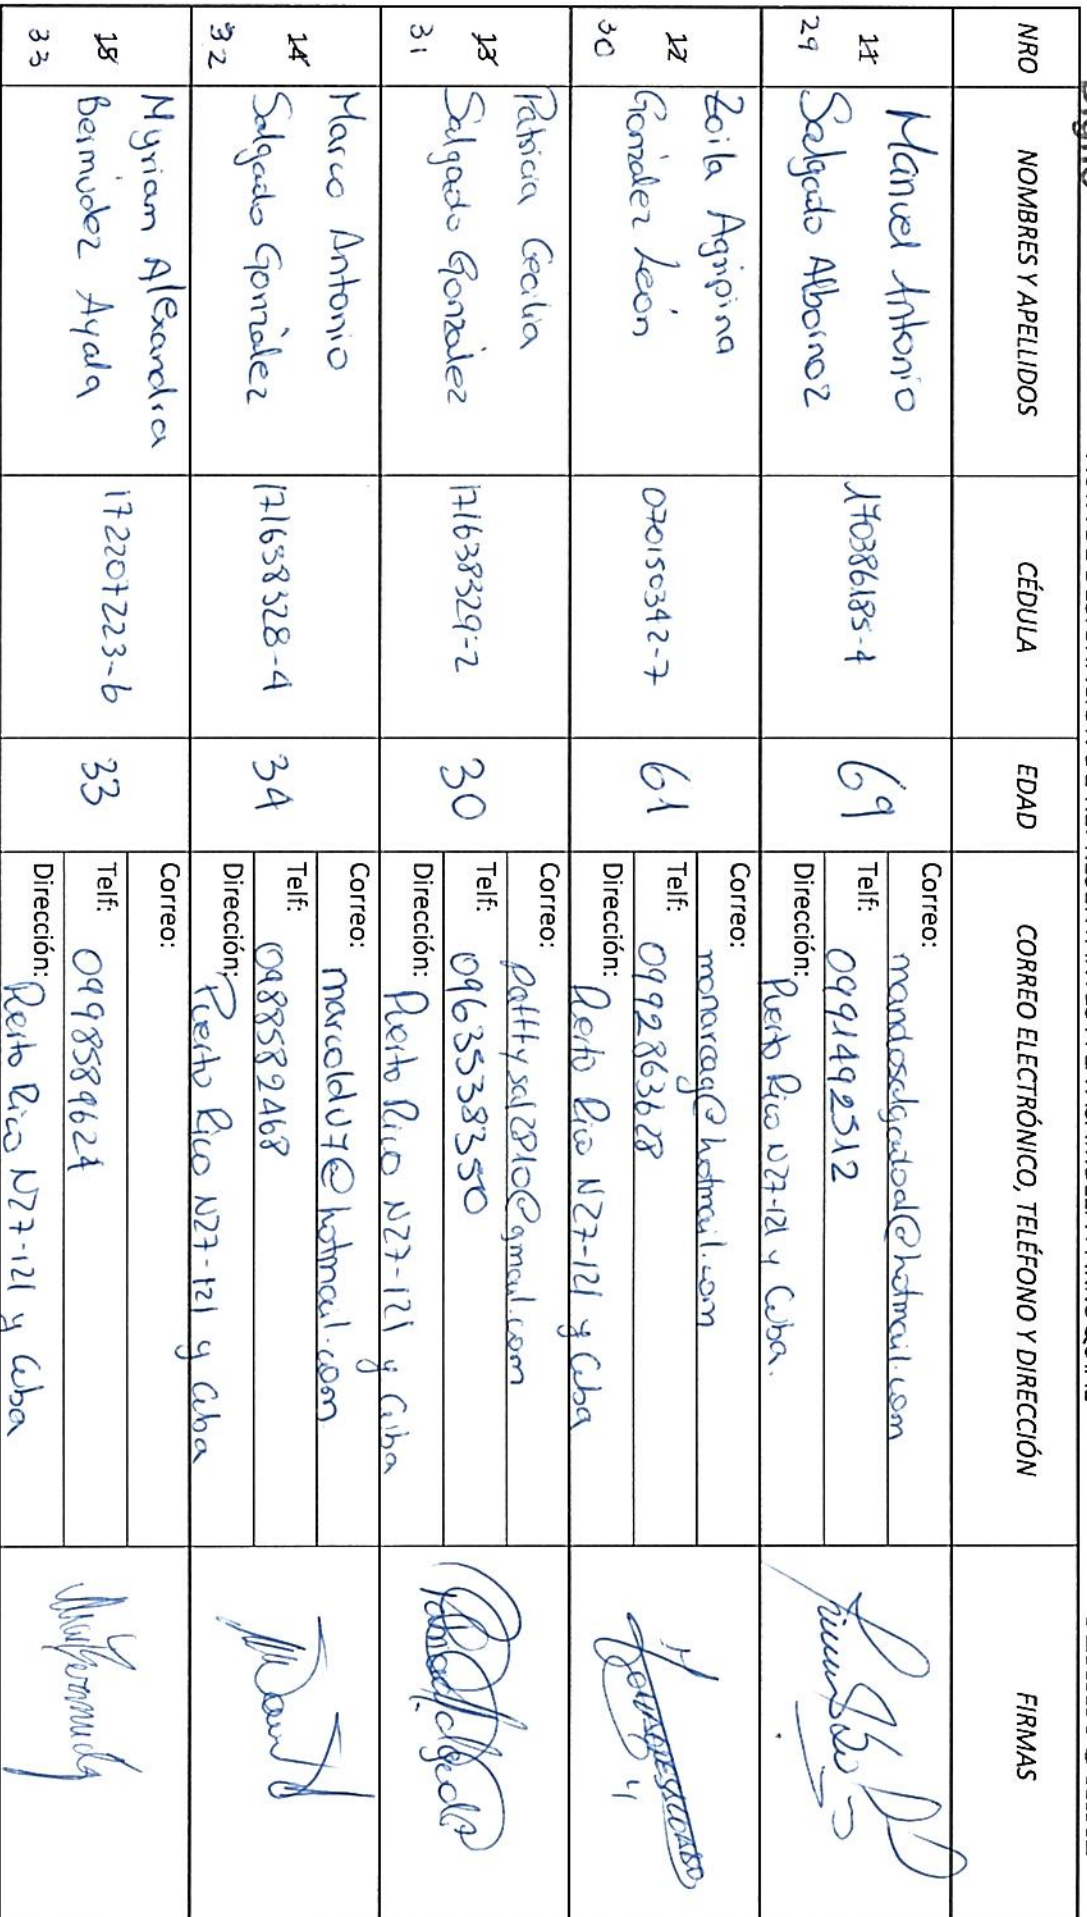 NRO NOMBRES Y APELLIDOS CÉDULA EDAD CORREO ELECTRÓNICO, TELÉFONO Y DIRECCIÓN FIRMAS
11
29
Manuel Antonio
Salgado Albornoz
170386185-1
69
Correo: mandosalgadoal@hotmail.com
Telf: 0991492512
Dirección: Puerto Rico N27-121 y Cuba.
12
30
Zoila Agripina
González León
070150342-7
61
Correo: monarcag@hotmail.com
Telf: 0992863628
Dirección: Puerto Rico N27-121 y Cuba
13
31
Patricia Cecilia
Salgado González
171638329-2
30
Correo: patttysal2810@gmail.com
Telf: 0963538350
Dirección: Puerto Rico N27-121 y Cuba
14
32
Marco Antonio
Salgado González
171638328-4
34
Correo: marcoldu7@hotmail.com
Telf: 0988582468
Dirección: Puerto Rico N27-121 y Cuba
15
33
Myriam Alexandra
Bermúdez Ayala
172207223-6
33
Correo:
Telf: 0998589621
Dirección: Puerto Rico N27-121 y Cuba